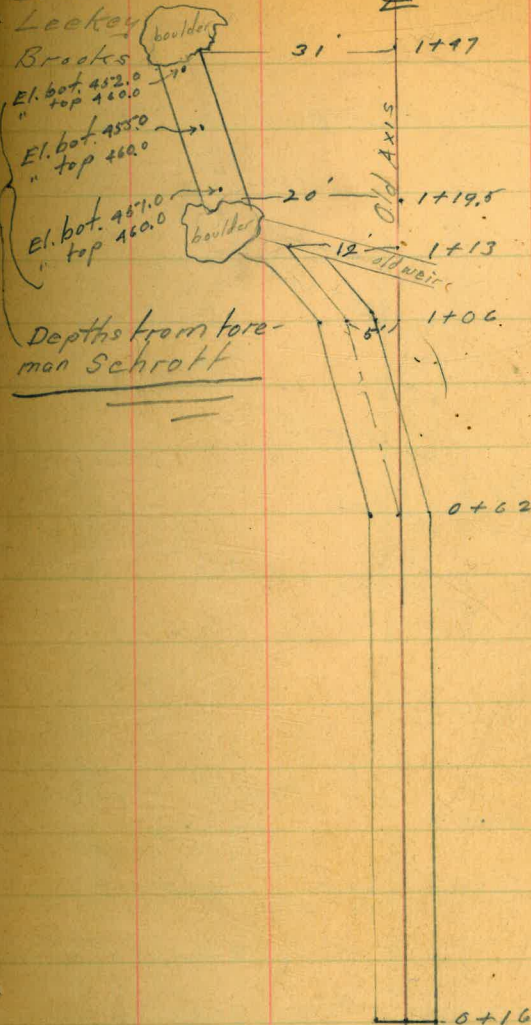 Leekey
Brooks
boulder
31'
1+47
El. bot. 452.0
" top 460.0
El. bot. 455.0
" top 460.0
Old Axis
20'
1+19.5
El. bot. 457.0
" top 460.0
boulder
12'
1+13
old weir
5'
1+06
Depths from fore-
man Schrott
0+62
0+16